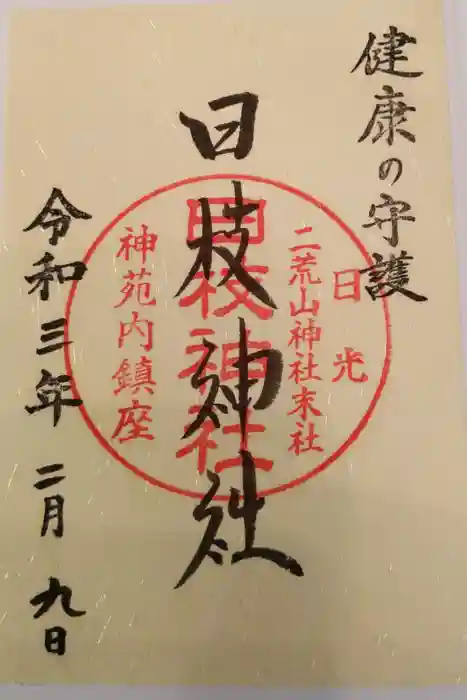 健康の守護
日光
二荒山神社末社
日枝神社
日枝神社
神苑内鎮座
令和三年二月九日